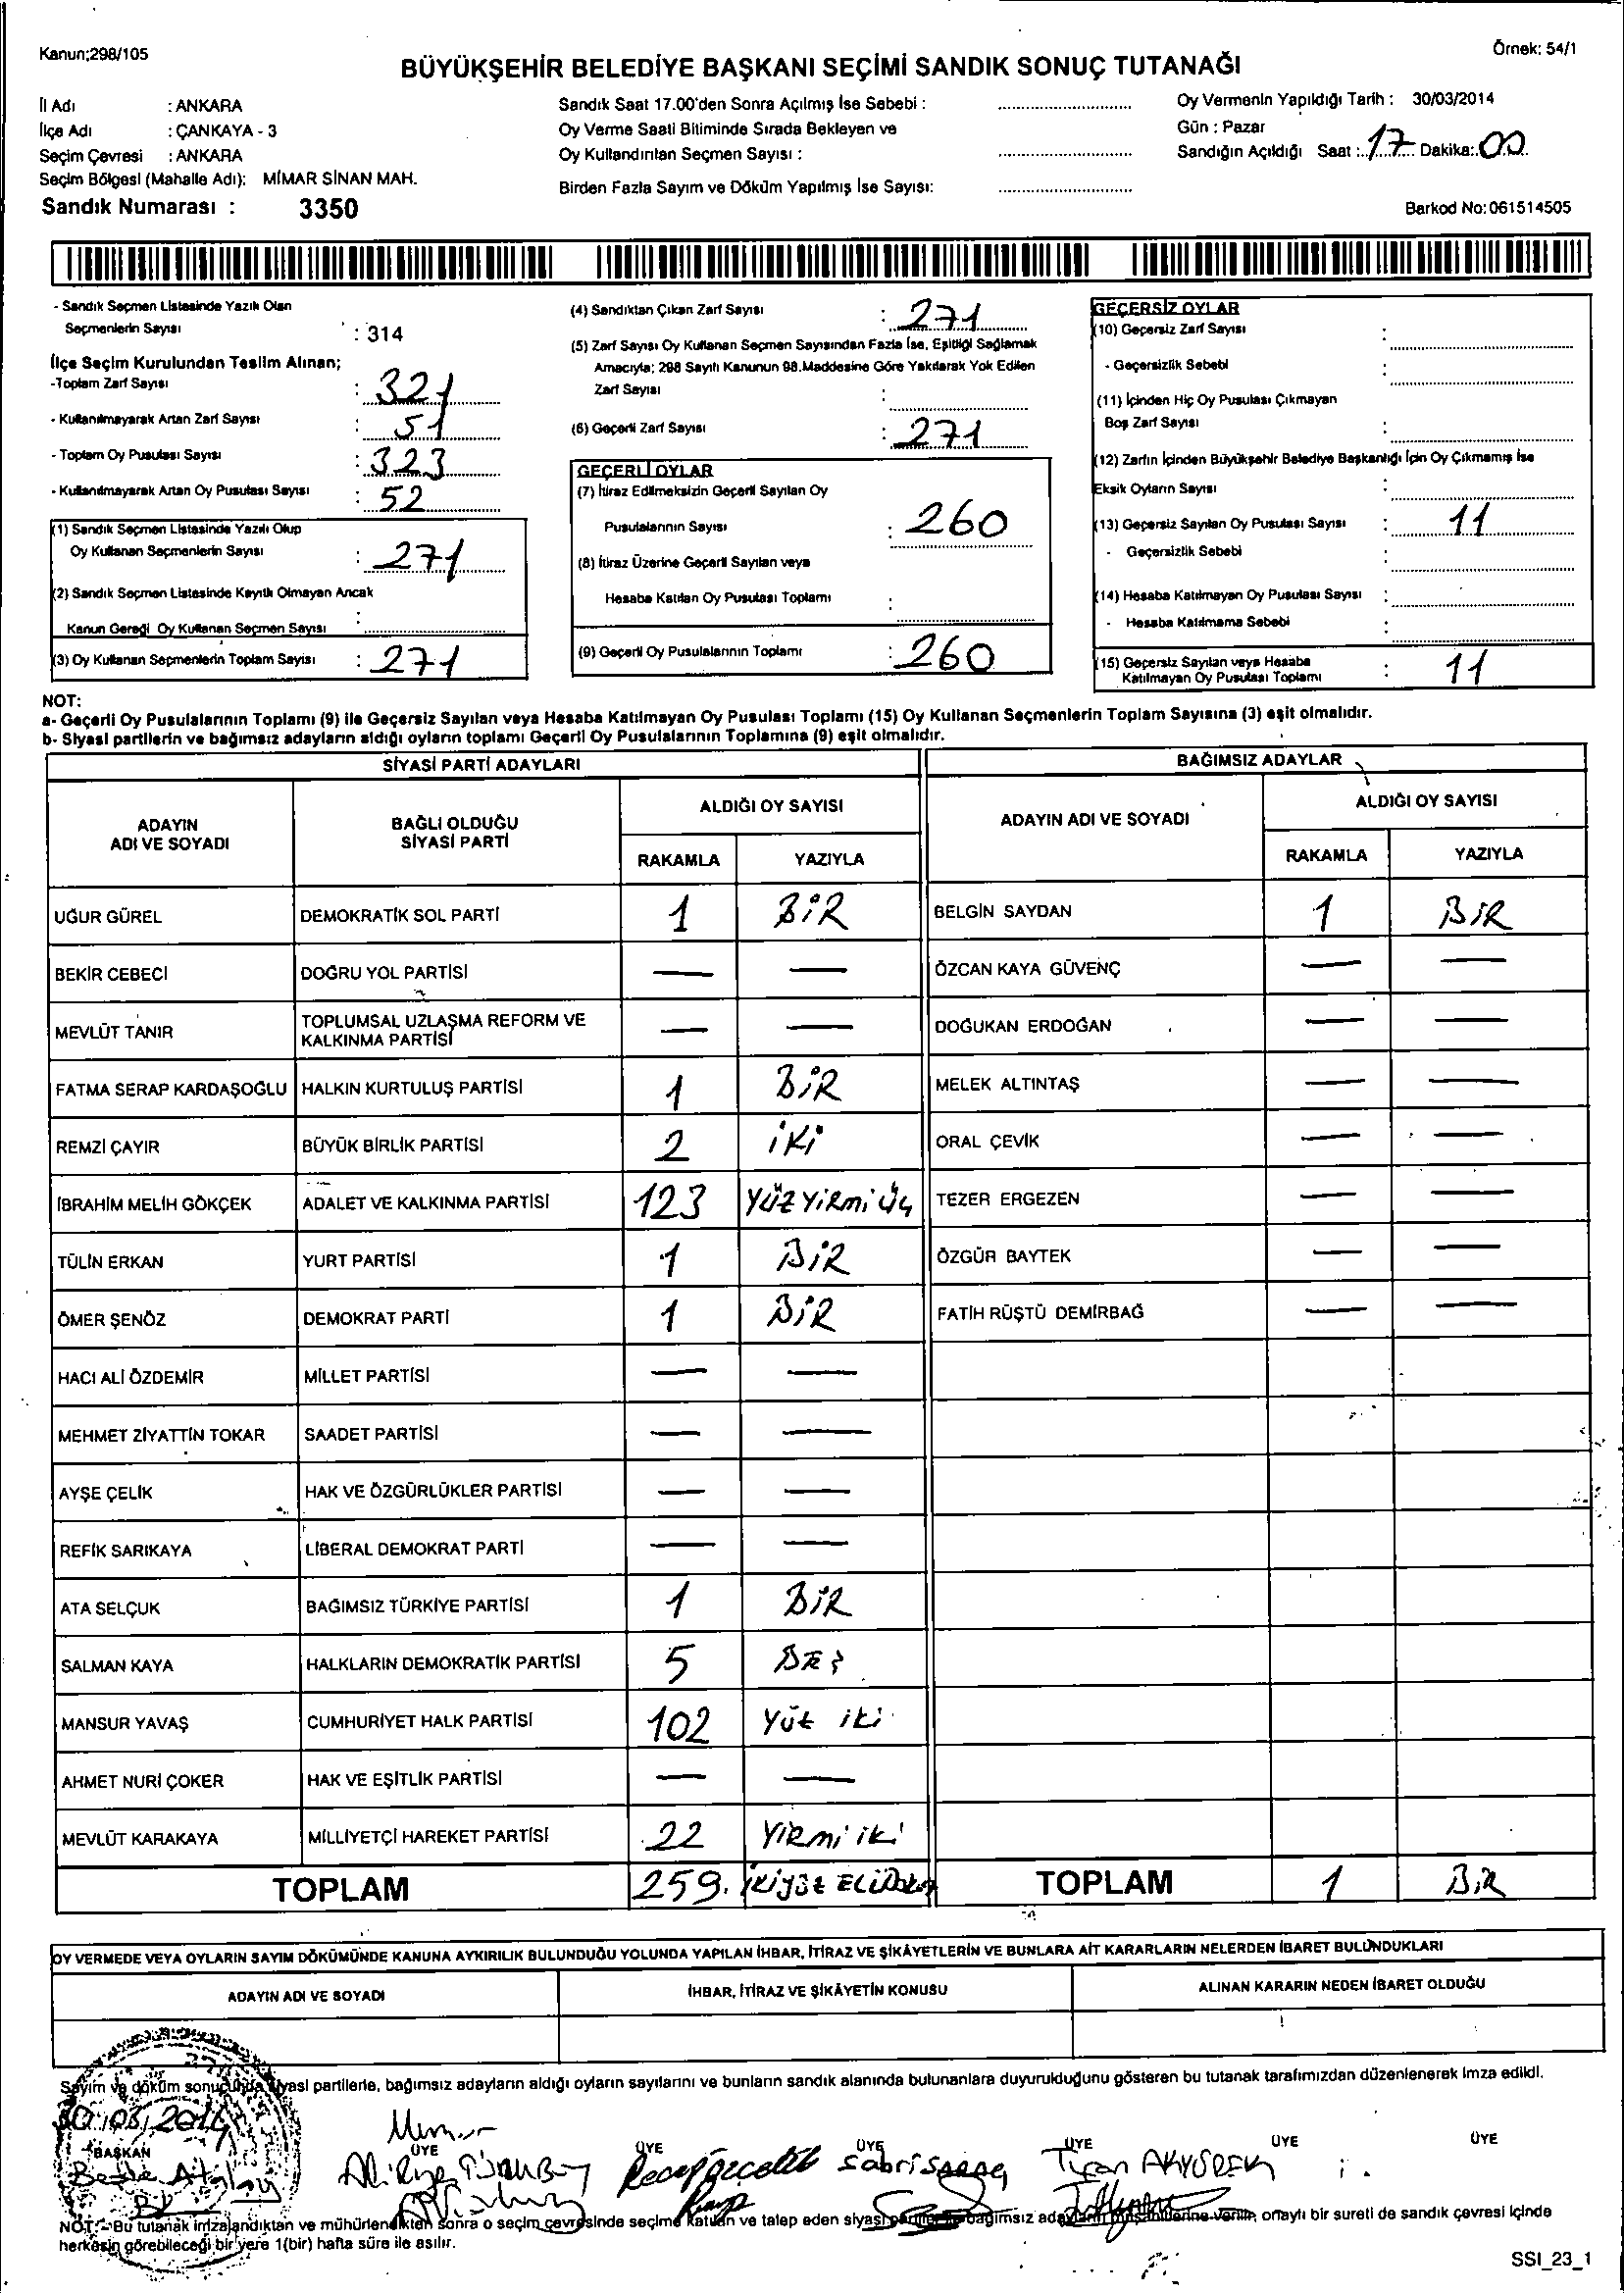 Kanun;298/105
Örnek: 54/1
BÜYÜKŞEHİR BELEDİYE BAŞKANI SEÇİMİ SANDIK SONUÇ TUTANAĞI
İl Adı : ANKARA
İlçe Adı : ÇANKAYA - 3
Seçim Çevresi : ANKARA
Seçim Bölgesi (Mahalle Adı): MİMAR SİNAN MAH.
Sandık Numarası : 3350
Sandık Saat 17.00'den Sonra Açılmış İse Sebebi :
Oy Verme Saati Bitiminde Sırada Bekleyen ve
Oy Kullandırılan Seçmen Sayısı :
Birden Fazla Sayım ve Döküm Yapılmış İse Sayısı:
Oy Vermenin Yapıldığı Tarih : 30/03/2014
Gün : Pazar
Sandığın Açıldığı Saat : 17 Dakika: 00
Barkod No:061514505
- Sandık Seçmen Listesinde Yazılı Olan
Seçmenlerin Sayısı : 314
İlçe Seçim Kurulundan Teslim Alınan;
-Toplam Zarf Sayısı : 321
- Kullanılmayarak Artan Zarf Sayısı : 51
- Toplam Oy Pusulası Sayısı : 323
- Kullanılmayarak Artan Oy Pusulası Sayısı : 52
(1) Sandık Seçmen Listesinde Yazılı Olup
Oy Kullanan Seçmenlerin Sayısı : 271
(2) Sandık Seçmen Listesinde Kayıtlı Olmayan Ancak
Kanun Gereği Oy Kullanan Seçmen Sayısı :
(3) Oy Kullanan Seçmenlerin Toplam Sayısı : 271
(4) Sandıktan Çıkan Zarf Sayısı : 271
(5) Zarf Sayısı Oy Kullanan Seçmen Sayısından Fazla İse, Eşitliği Sağlamak
Amacıyla; 298 Sayılı Kanunun 98.Maddesine Göre Yakılarak Yok Edilen
Zarf Sayısı :
(6) Geçerli Zarf Sayısı : 271
GEÇERLİ OYLAR
(7) İtiraz Edilmeksizin Geçerli Sayılan Oy
Pusulalarının Sayısı : 260
(8) İtiraz Üzerine Geçerli Sayılan veya
Hesaba Katılan Oy Pusulası Toplamı :
(9) Geçerli Oy Pusulalarının Toplamı : 260
GEÇERSİZ OYLAR
(10) Geçersiz Zarf Sayısı :
- Geçersizlik Sebebi :
(11) İçinden Hiç Oy Pusulası Çıkmayan
Boş Zarf Sayısı :
(12) Zarfın İçinden Büyükşehir Belediye Başkanlığı İçin Oy Çıkmamış İse
Eksik Oyların Sayısı :
(13) Geçersiz Sayılan Oy Pusulası Sayısı : 11
- Geçersizlik Sebebi :
(14) Hesaba Katılmayan Oy Pusulası Sayısı :
- Hesaba Katılmama Sebebi :
(15) Geçersiz Sayılan veya Hesaba
Katılmayan Oy Pusulası Toplamı : 11
NOT:
a- Geçerli Oy Pusulalarının Toplamı (9) ile Geçersiz Sayılan veya Hesaba Katılmayan Oy Pusulası Toplamı (15) Oy Kullanan Seçmenlerin Toplam Sayısına (3) eşit olmalıdır.
b- Siyasi partilerin ve bağımsız adayların aldığı oyların toplamı Geçerli Oy Pusulalarının Toplamına (9) eşit olmalıdır.
SİYASİ PARTİ ADAYLARI
BAĞIMSIZ ADAYLAR
ADAYIN
ADI VE SOYADI
BAĞLI OLDUĞU
SİYASİ PARTİ
ALDIĞI OY SAYISI
RAKAMLA YAZIYLA
ADAYIN ADI VE SOYADI
ALDIĞI OY SAYISI
RAKAMLA YAZIYLA
UĞUR GÜREL DEMOKRATİK SOL PARTİ 1 BİR BELGİN SAYDAN 1 BİR
BEKİR CEBECİ DOĞRU YOL PARTİSİ — — ÖZCAN KAYA GÜVENÇ — —
MEVLÜT TANIR TOPLUMSAL UZLAŞMA REFORM VE
KALKINMA PARTİSİ — — DOĞUKAN ERDOĞAN — —
FATMA SERAP KARDAŞOĞLU HALKIN KURTULUŞ PARTİSİ 1 BİR MELEK ALTINTAŞ — —
REMZİ ÇAYIR BÜYÜK BİRLİK PARTİSİ 2 iKi ORAL ÇEVİK — —
İBRAHİM MELİH GÖKÇEK ADALET VE KALKINMA PARTİSİ 123 YÜZ YİRMİ ÜÇ TEZER ERGEZEN — —
TÜLİN ERKAN YURT PARTİSİ 1 BİR ÖZGÜR BAYTEK — —
ÖMER ŞENÖZ DEMOKRAT PARTİ 1 BİR FATİH RÜŞTÜ DEMİRBAĞ — —
HACI ALİ ÖZDEMİR MİLLET PARTİSİ — —
MEHMET ZİYATTİN TOKAR SAADET PARTİSİ — —
AYŞE ÇELİK HAK VE ÖZGÜRLÜKLER PARTİSİ — —
REFİK SARIKAYA LİBERAL DEMOKRAT PARTİ — —
ATA SELÇUK BAĞIMSIZ TÜRKİYE PARTİSİ 1 BİR
SALMAN KAYA HALKLARIN DEMOKRATİK PARTİSİ 5 BEŞ
MANSUR YAVAŞ CUMHURİYET HALK PARTİSİ 102 YÜZ iKi
AHMET NURİ ÇOKER HAK VE EŞİTLİK PARTİSİ — —
MEVLÜT KARAKAYA MİLLİYETÇİ HAREKET PARTİSİ 22 YİRMİ iKi
TOPLAM 259 İKİYÜZ TOPLAM 1 BİR
OY VERMEDE VEYA OYLARIN SAYIM DÖKÜMÜNDE KANUNA AYKIRILIK BULUNDUĞU YOLUNDA YAPILAN İHBAR, İTİRAZ VE ŞİKÂYETLERİN VE BUNLARA AİT KARARLARIN NELERDEN İBARET BULUNDUKLARI
ADAYIN ADI VE SOYADI İHBAR, İTİRAZ VE ŞİKÂYETİN KONUSU ALINAN KARARIN NEDEN İBARET OLDUĞU
Sayım ve döküm sonucunda siyasi partilerle, bağımsız adayların aldığı oyların sayılarını ve bunların sandık alanında bulunanlara duyurulduğunu gösteren bu tutanak tarafımızdan düzenlenerek imza edildi.
30.03.2014
BAŞKAN ÜYE ÜYE ÜYE ÜYE ÜYE ÜYE
Turan AKYÜREK
NOT:- Bu tutanak imzalandıktan ve mühürlendikten sonra o seçim çevresinde seçime katılan ve talep eden siyasi partilerle bağımsız adayların müşahitlerine verilir, onaylı bir sureti de sandık çevresi içinde
herkesin görebileceği bir yere 1(bir) hafta süre ile asılır.
SSI_23_1